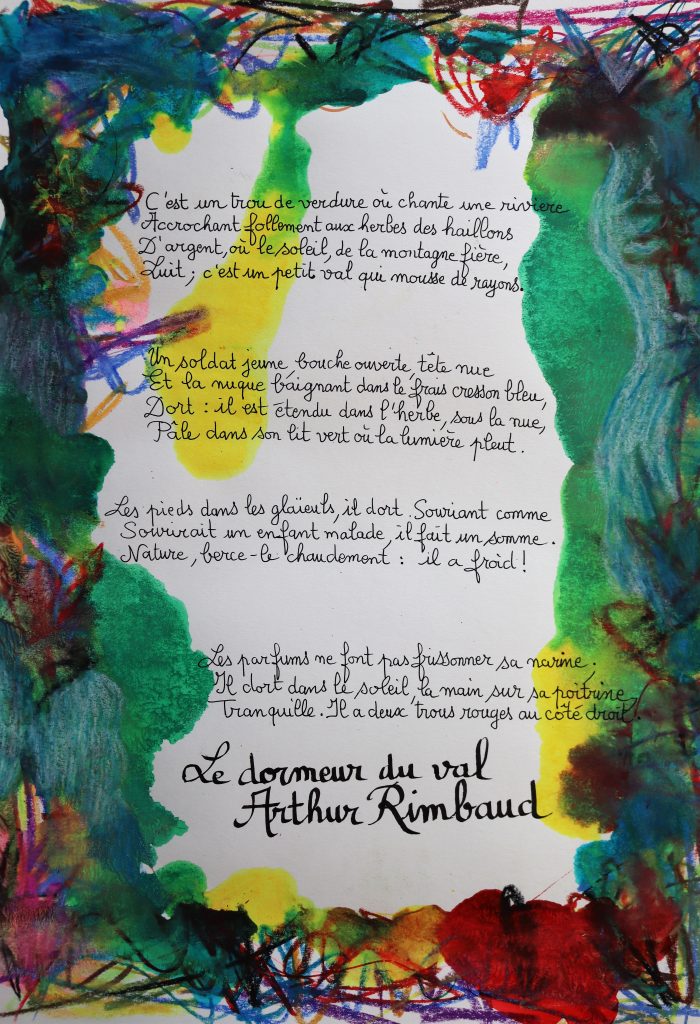 C'est un trou de verdure où chante une rivière
Accrochant follement aux herbes des haillons
D'argent, où le soleil, de la montagne fière,
Luit ; c'est un petit val qui mousse de rayons.
Un soldat jeune, bouche ouverte, tête nue
Et la nuque baignant dans le frais cresson bleu,
Dort : il est étendu dans l'herbe, sous la nue,
Pâle dans son lit vert où la lumière pleut.
Les pieds dans les glaïeuls, il dort. Souriant comme
Sourirait un enfant malade, il fait un somme.
Nature, berce-le chaudement : il a froid !
Les parfums ne font pas frissonner sa narine ;
Il dort dans le soleil, la main sur sa poitrine
Tranquille. Il a deux trous rouges au côté droit.
Le dormeur du val
Arthur Rimbaud